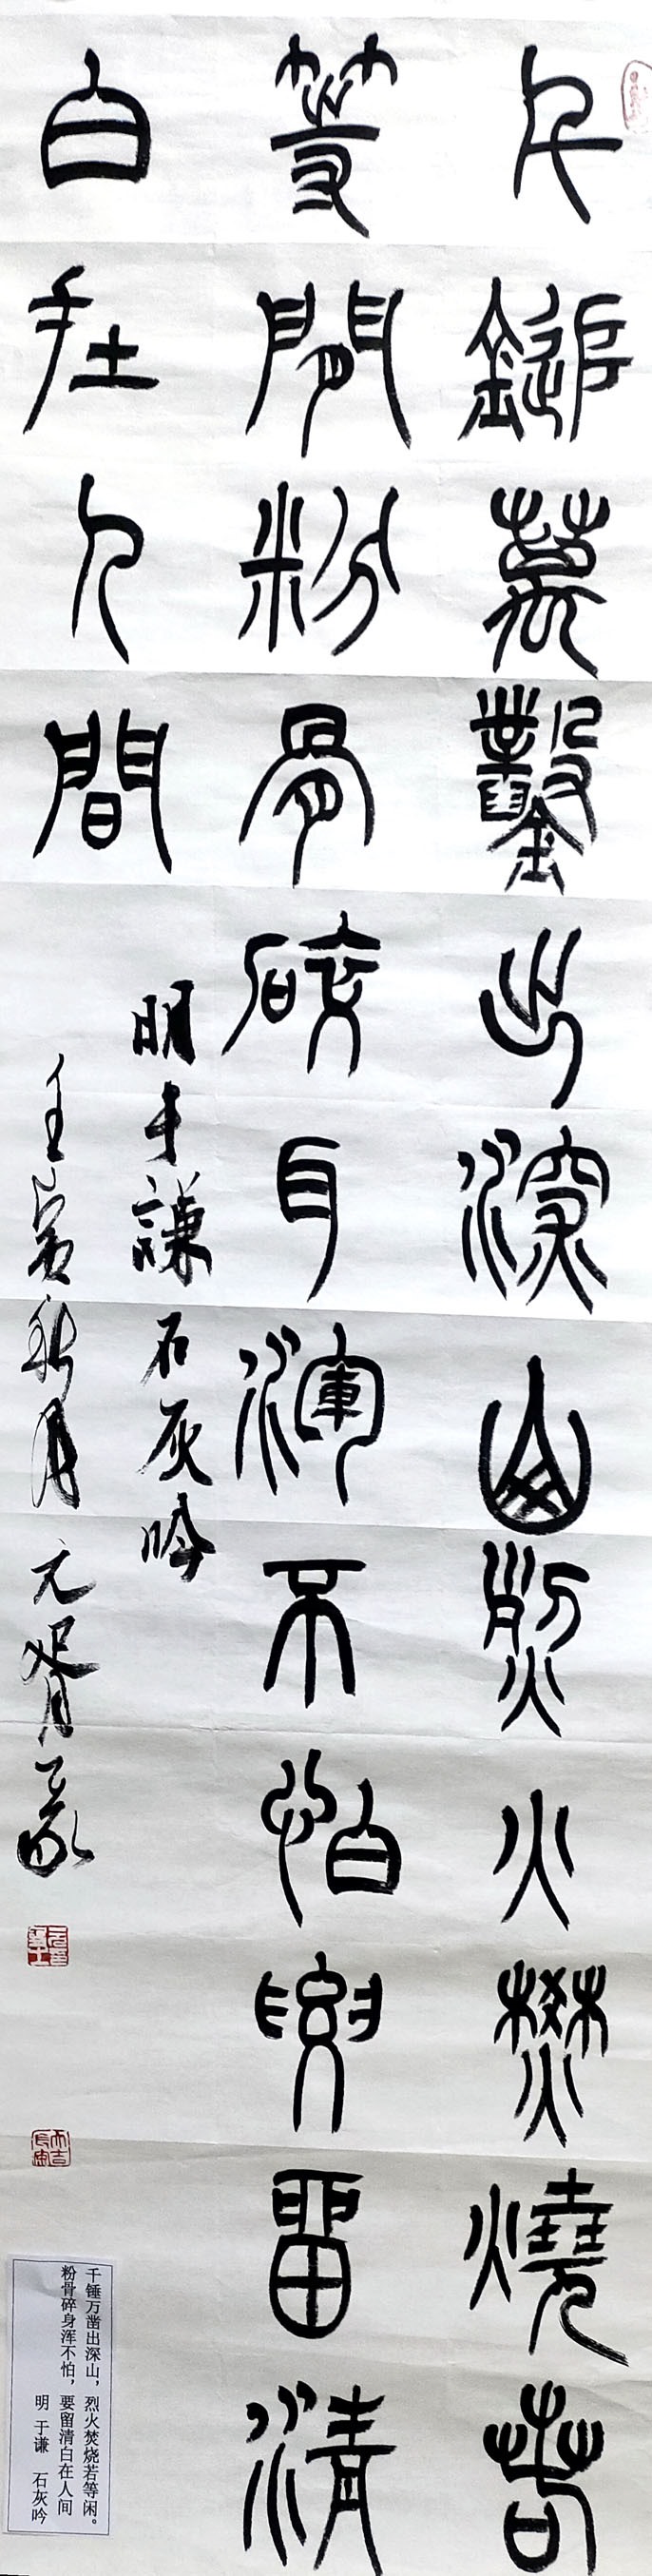 千鎚萬鑿出深山烈火焚燒若
等閒粉骨碎身渾不怕要留清
白在人間
明于謙石灰吟
壬寅秋月元胥篆
千锤万凿出深山，烈火焚烧若等闲。
粉骨碎身浑不怕，要留清白在人间
明 于谦 石灰吟